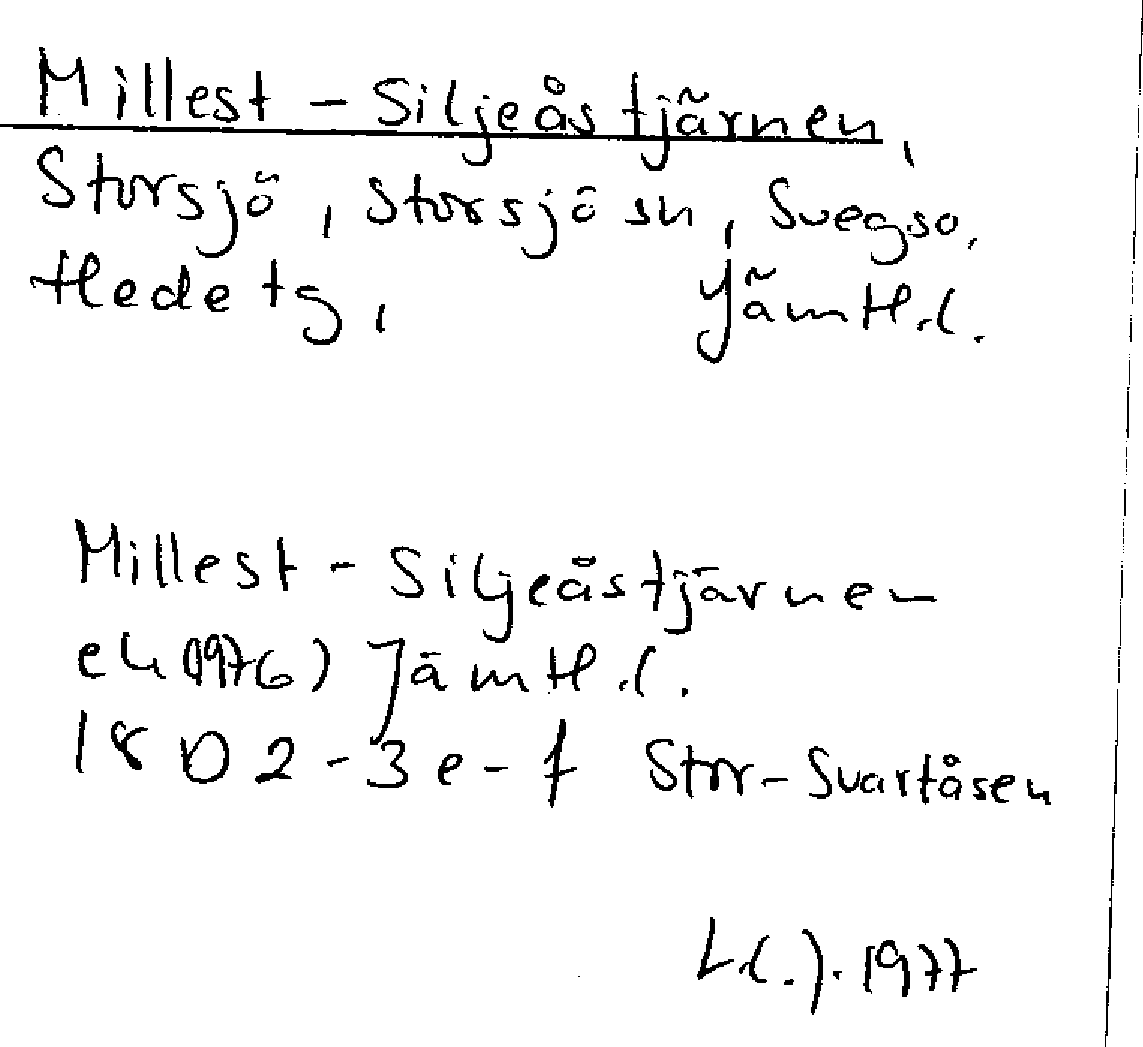 Millest - Siljeåstjärnen,
Storsjö, Storsjö sn, Svegso,
Hede tg, Jämtl.l.
Millest - Siljeåstjärnen
ek (1976) Jämtl.l.
18 D 2-3 e-f Stor-Svartåsen
1977